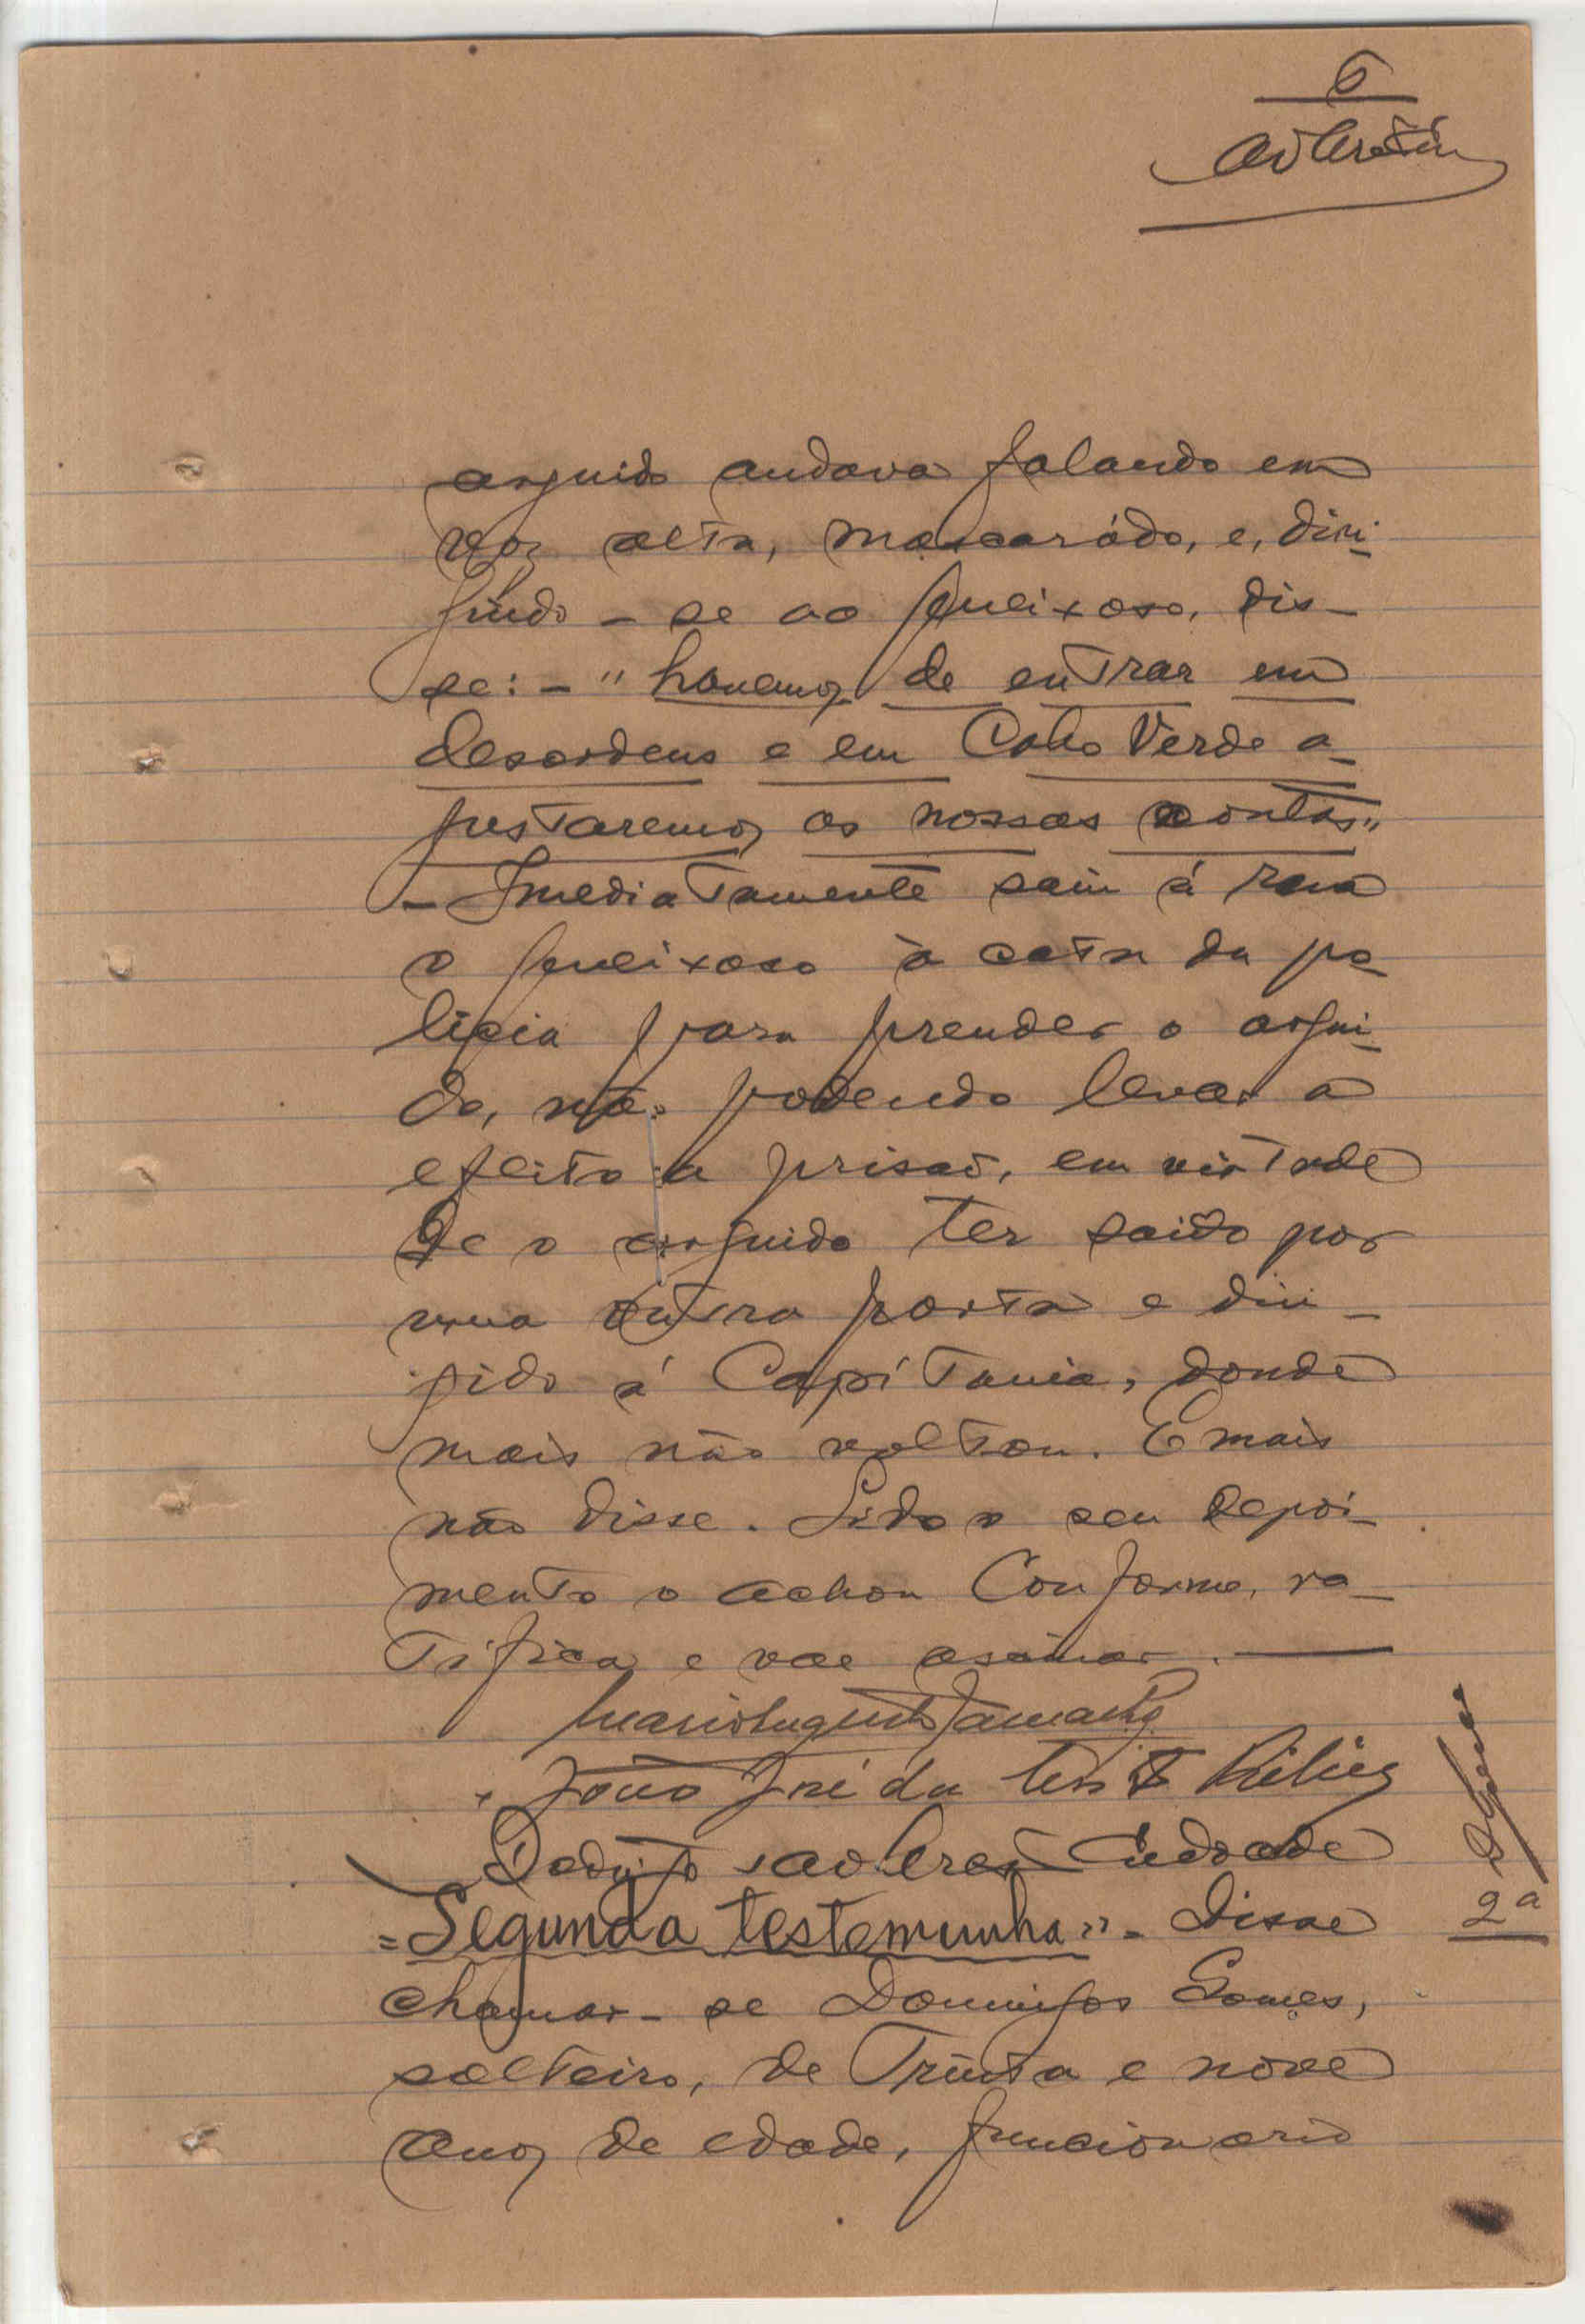 6
arguido andava falando em
voz alta, mascarádo, e, diri-
gindo-se ao queixoso, dis-
se: - "havemoz de entrar em
desordens e em Cabo Verde a-
justaremoz as nossas contas"
- Imediatamente saiu á rua
o queixoso à cata da po-
licia para prender o argui-
do, não podendo levar a
efeito a prisão, em virtude
de o arguido ter saido por
uma outra porta e diri-
gido á Capitania, donde
mais não voltou. E mais
não disse. Lido o seu depoi-
mento o achou conforme, ra-
tifica e vae assinar.
João José da
Andrade
=Segunda testemunha"- Disse
2ª
chamar-se Domingos Gomes,
solteiro, de trinta e nove
anoz de edade, funcionario